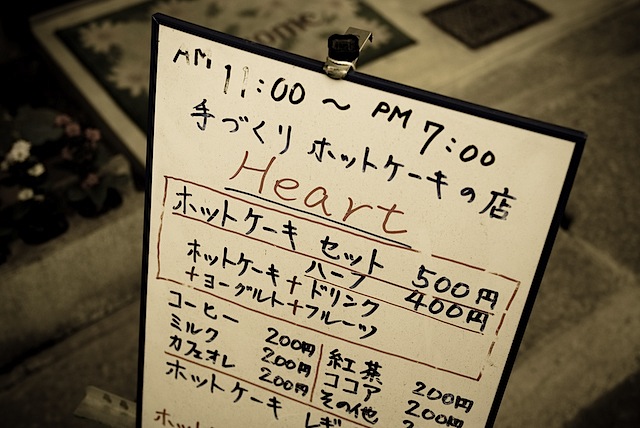 AM 11:00 ～ PM 7:00
手づくり ホットケーキの店
Heart
ホットケーキ セット 500円
ハーフ 400円
ホットケーキ+ドリンク
+ヨーグルト+フルーツ
コーヒー 200円
ミルク 200円
カフェオレ 200円
紅茶 200円
ココア 200円
その他
ホットケーキ レギ
ホット